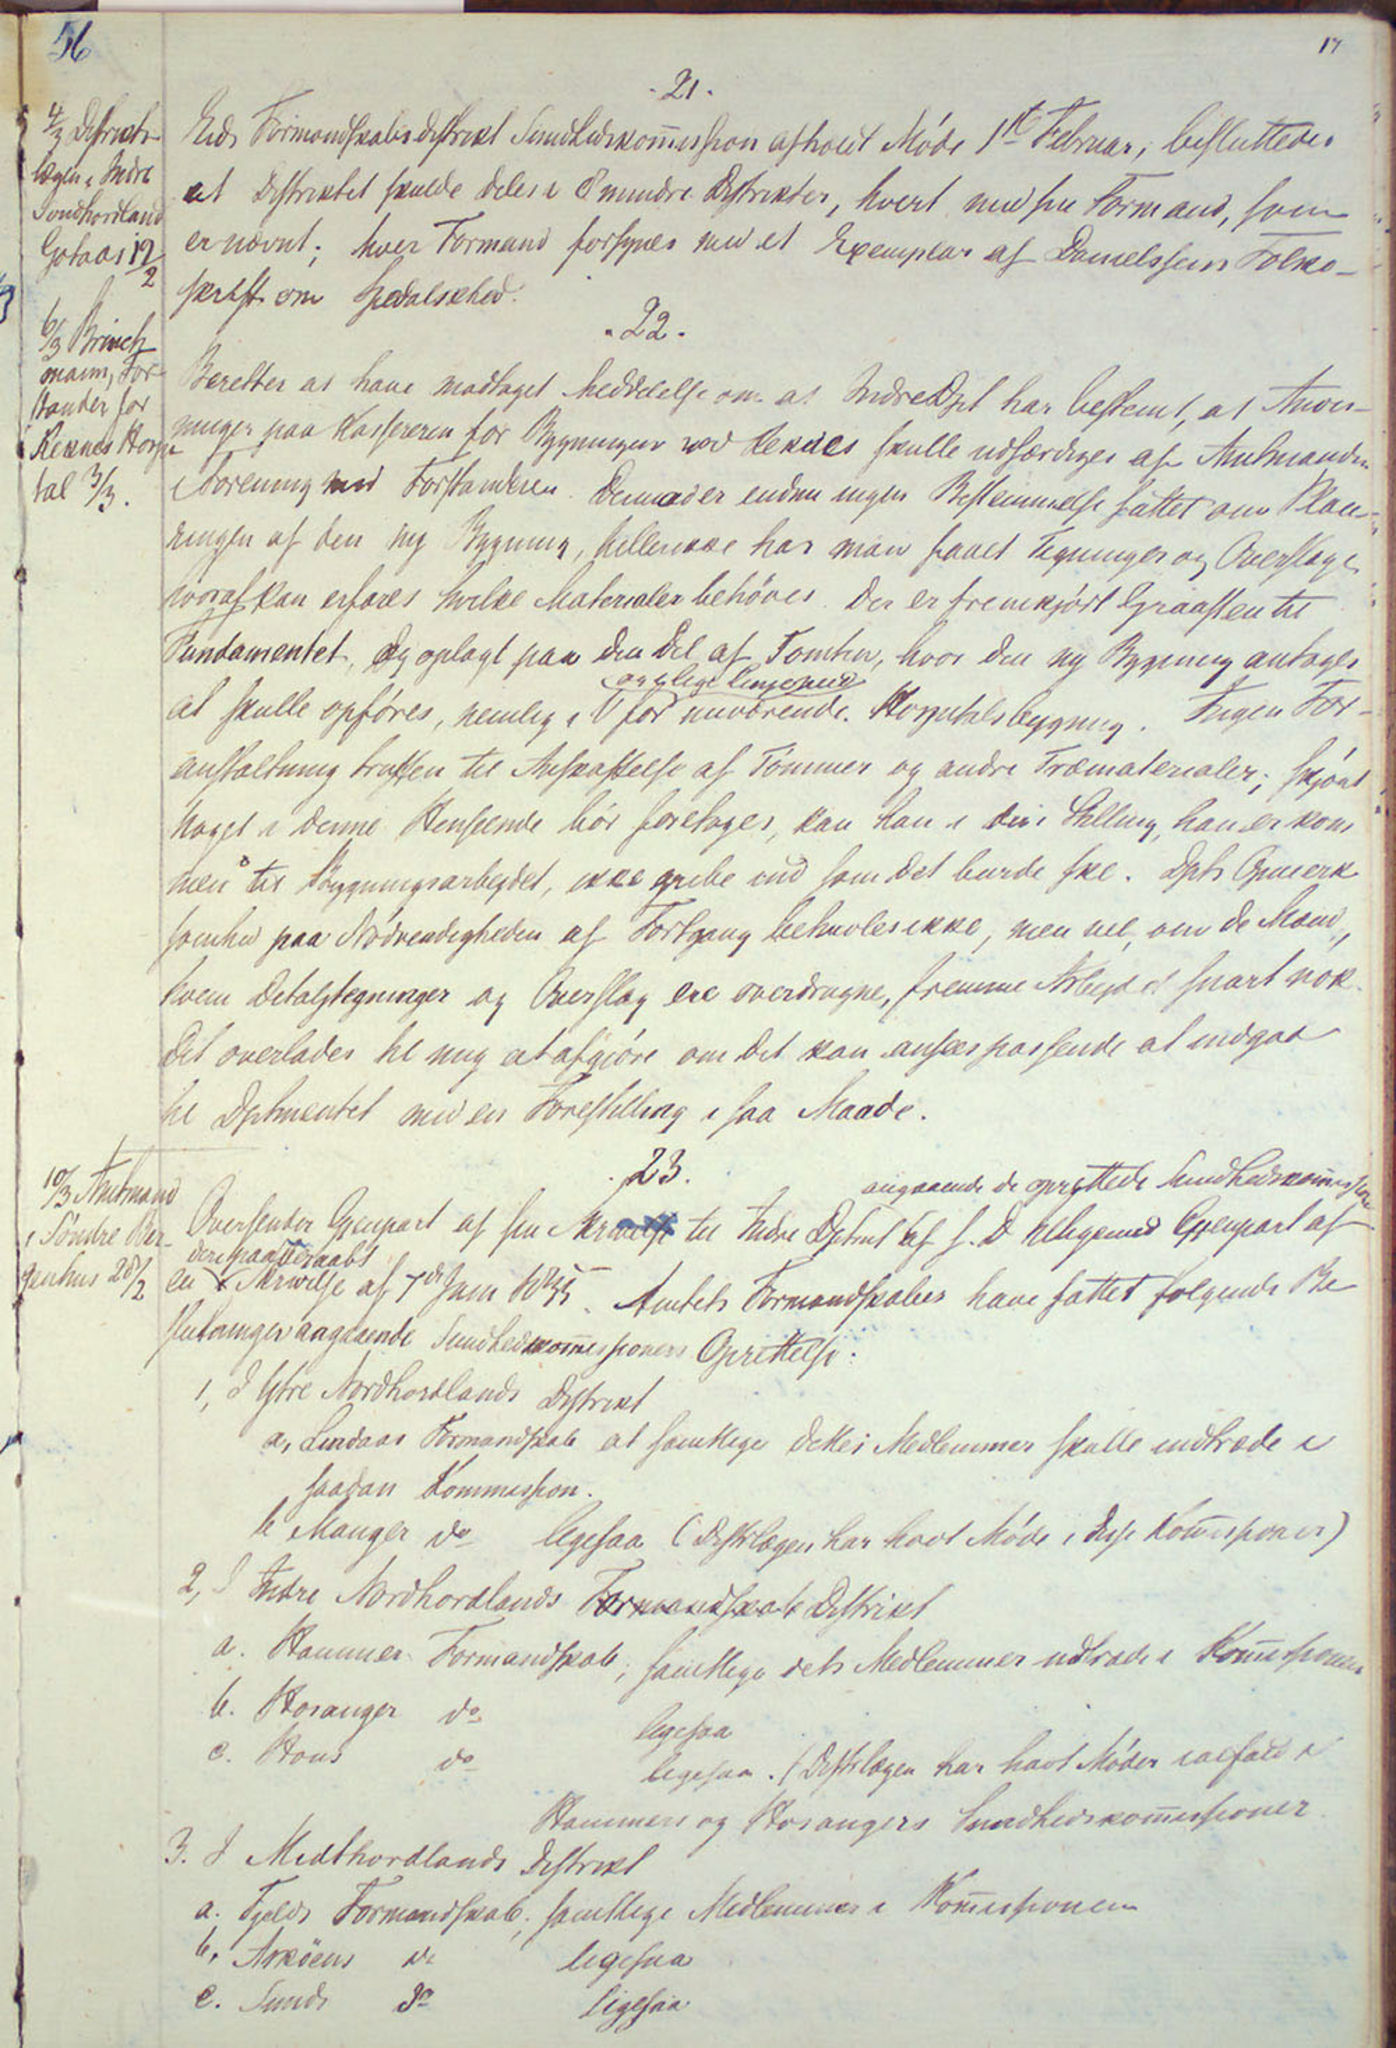 56
17
21.
4/3 Distrikts
lægen i Indre
Søndhordland
Gotaas 17/2
Eids Formandskabsdistrikt Sundhedskom̅ission afholdt Møde 1ste Februar, besluttedes
at Distriktet skulde deles i 8 mindre Distrikter, hvert med sin Formand, som
er nævnt; hver Formand forsynes med et Exemplar af Danielssens Folke-
skrift om Spedalskhed.
22.
6/3 Brinch
mann, For-
stander for
Reknes Hospi
tal 3/3.
Beretter at have modtaget Meddelelse om at Indre Dpt har bestemt, at Anvis-
ninger paa Kassereren for Bygningen ved Reknes skulle udfærdiges af Amtmanden
i Forening med Forstanderen. Derimod er endnu ingen Bestemmelse fattet om Plan-
eringen af den ny Bygning, hellerikke har man faaet Tegninger og Overslag,
hvoraf kan erfares hvilke Materialer behøves. Der er fremkjørt Graasten til
Fundamentet, og oplagt paa den Del af Tomten, hvor den ny Bygning antages
at skulle opføres, nemlig i V for nuværende Hospitalsbygning. Ingen For-
anstaltning truffen til Anskaffelse af Tømmer og andre Træmaterialer; skjønt
Noget i denne Henseende bør foretages, kan han i den Stilling, han er kom
men til Bygningsarbeidet, ikke gribe ind som det burde ske. Dpts Opmerk
somhed paa Nødvendigheden af Fortgang betvivles ikke, men vel, om de Mænd,
hvem Detaljtegninger og Overslag ere overdragne, fremme Arbeidet snart nok.
Det overlades til mig at afgjøre om det kan ansees passende at indgaa
til Dptmentet med en Forestilling i saa Maade.
23.
10/3 Amtmand
i Søndre Ber-
genhus 28/2
angaaende de oprettede Sundhedskom̅issioner
Oversender Gjenpart af sin Skrivelse til Indre Dptmt af s. D tilligemed Gjenpart af
en deri paaberaabt Skrivelse af 7de Juni 1855. Amtets Formandskaber have fattet følgende Be
slutninger angaaende Sundhedskom̅issioners Oprettelse:
1, I Ytre Nordhordlands Distrikt
a, Lindaas Formandskab at samtlige dettes Medlemmer skulle indtræde i
saadan Kommission.
b Manger do ligesaa (Distrlægen har havt Møde i disse Kom̅issioner)
2, I Indre Nordhordlands Formandskabs Distrikt
a. Hammer Formandskab, samtlige dets Medlemmer indtræde i Kom̅issionen
b. Hosanger do ligesaa
c. Hous do ligesaa. (Distrlægen har havt Møder ialfald i
Hammers og Hosangers Sundhedskom̅issioner
3. I Midthordlands Distrikt
a. Fjelds Formandskab, samtlige Medlemmer i Kom̅issionen
b. Askøens do ligesaa
c. Sunds Do ligesaa